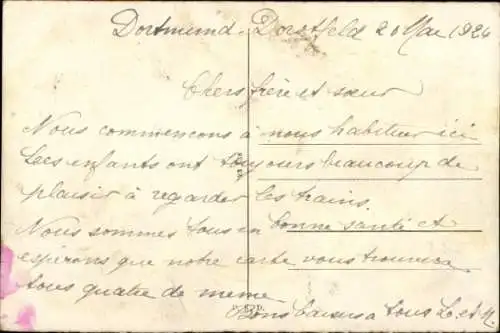 Dortmund-Dorstfeld 20 Mai 1924
Chers frère et sœur
Nous commençons à nous habituer ici
Les enfants ont toujours beaucoup de
plaisir à regarder les trains.
Nous sommes tous en bonne santé et
espérons que notre carte vous trouvera
tous quatre de meme
Bons baisers a tous L et M